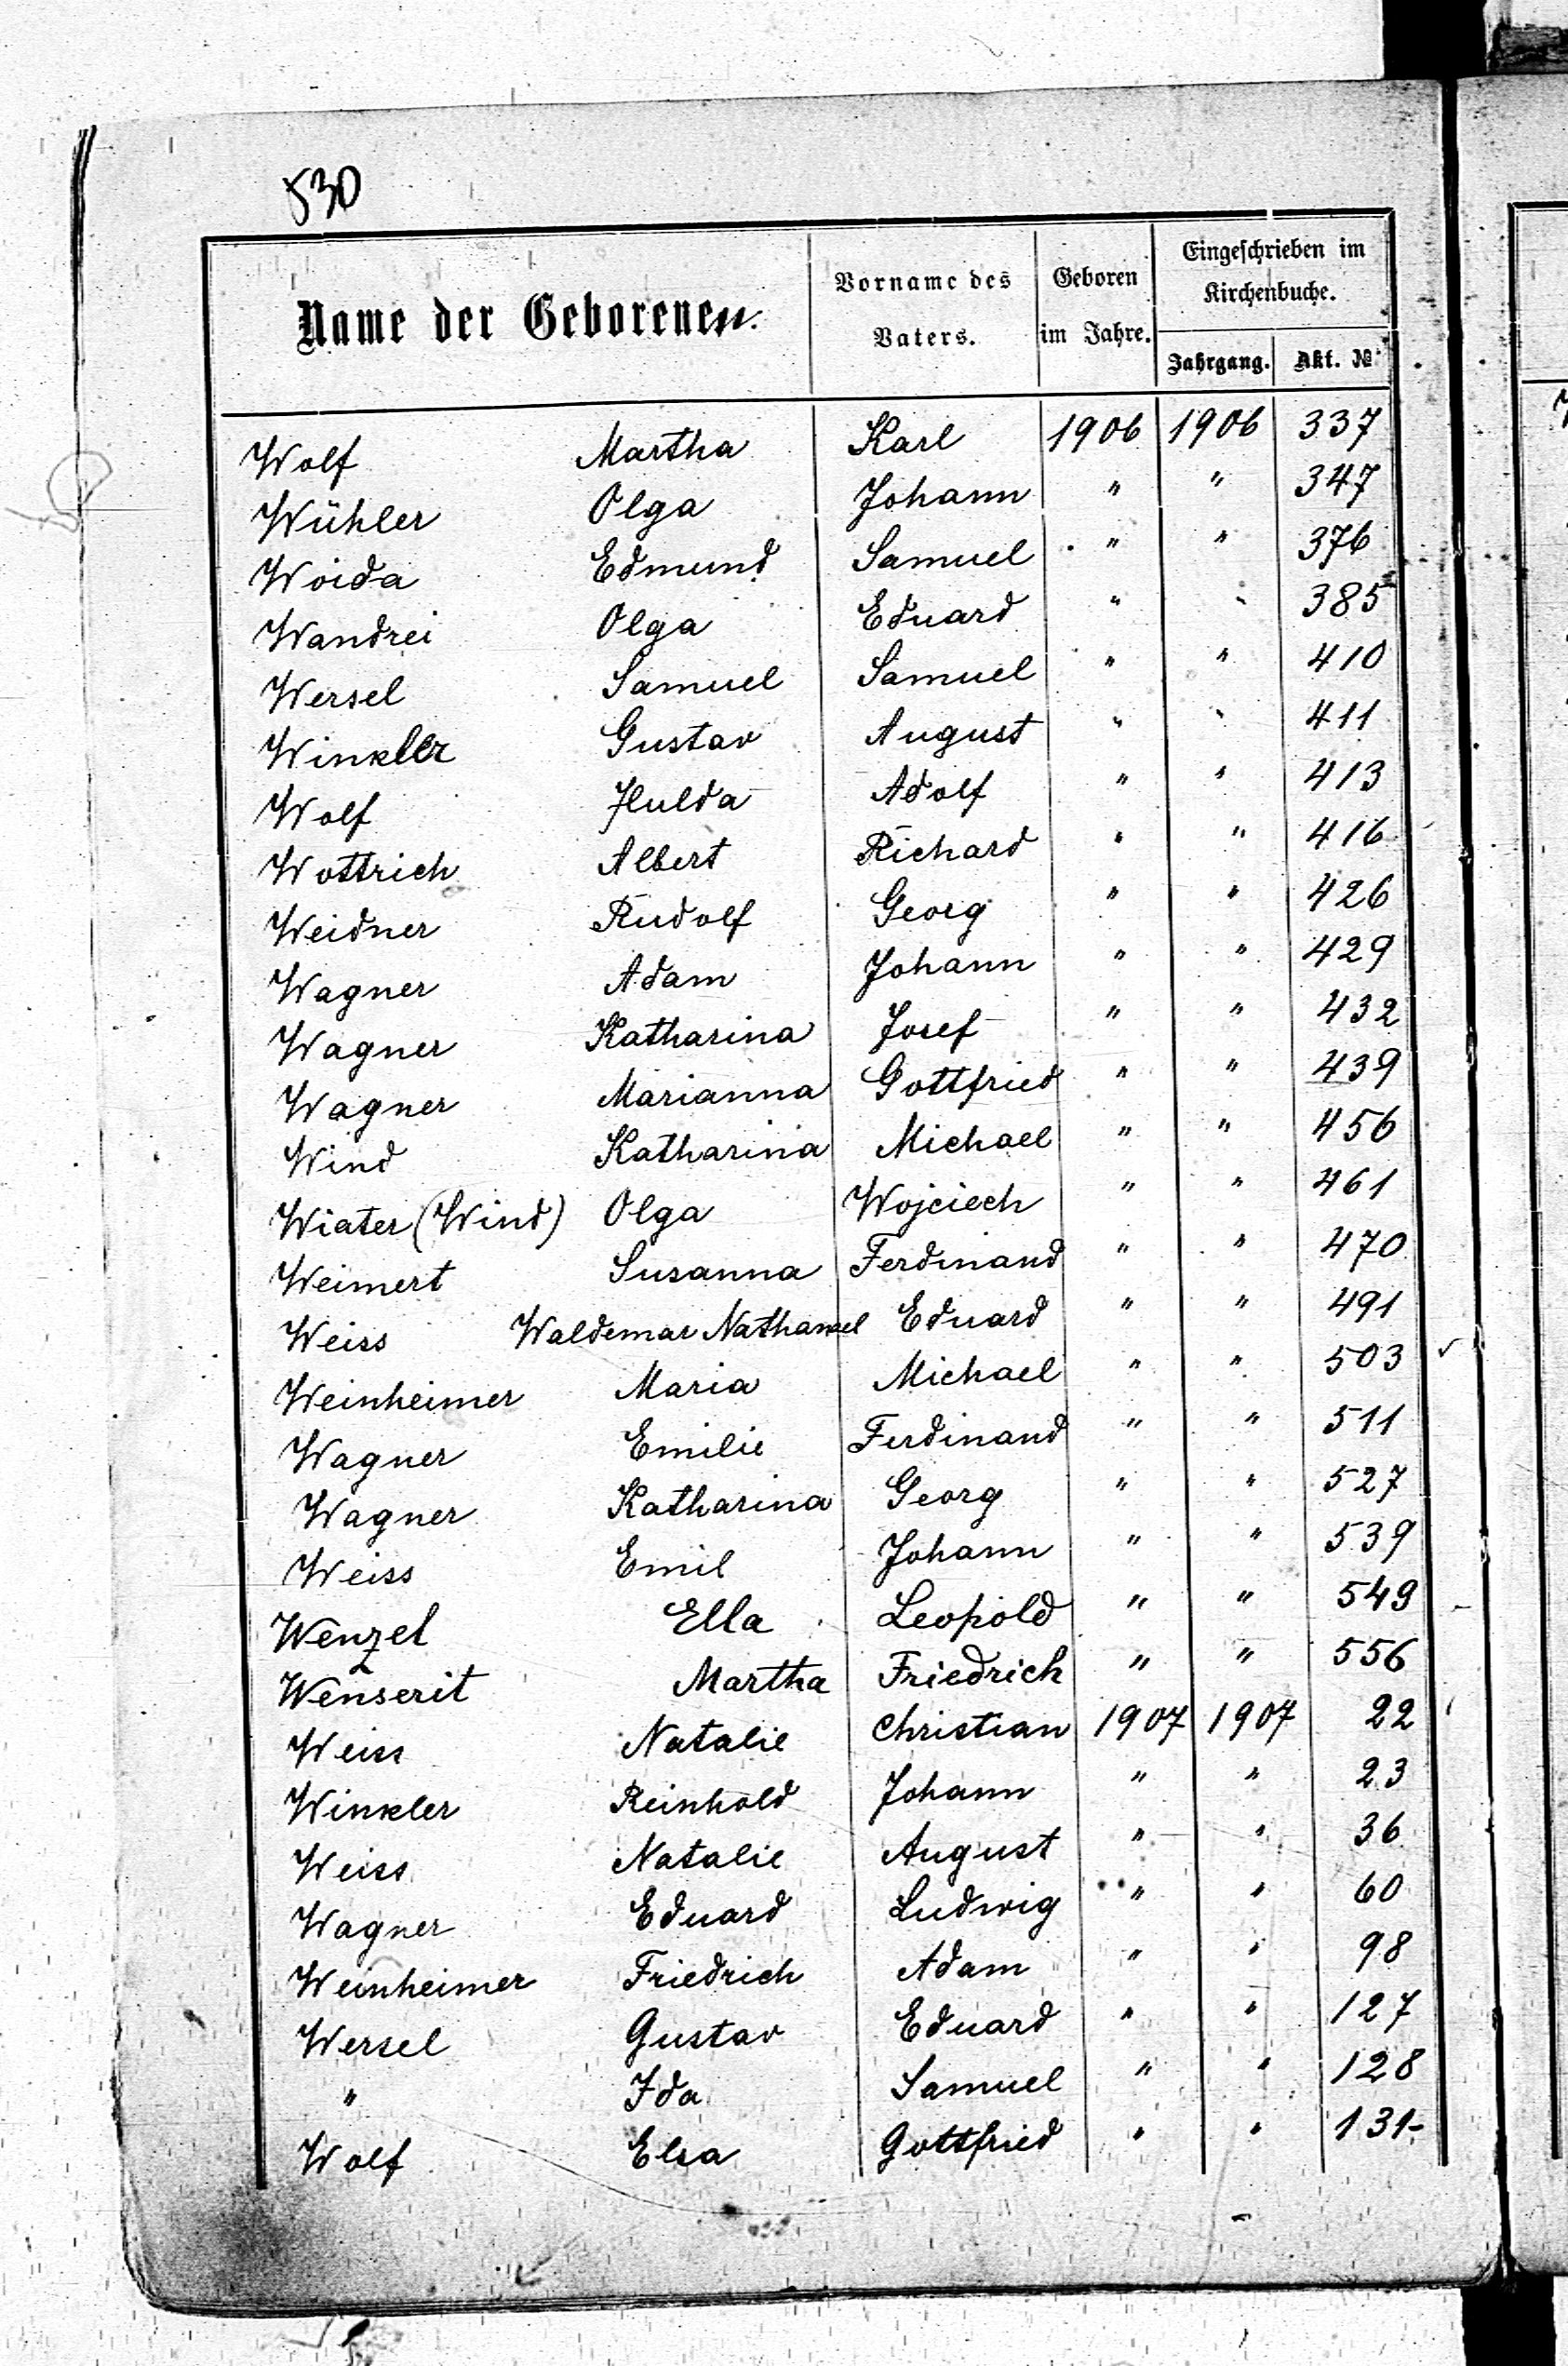 530
Name der Geborenen. Vorname des Vaters. Geboren im Jahre. Eingeschrieben im Kirchenbuche. Jahrgang. Akt. №
Wolf Martha Karl 1906 1906 337
Wühler Olga Johann " " 347
Woida Edmund Samuel " " 376
Wandrei Olga Eduard " " 385
Wersel Samuel Samuel " " 410
Winkler Gustav August " " 411
Wolf Hulda Adolf " " 413
Wottrich Albert Richard " " 416
Weidner Rudolf Georg " " 426
Wagner Adam Johann " " 429
Wagner Katharina Josef " " 432
Wagner Marianna Gottfried " " 439
Wind Katharina Michael " " 456
Wiater (Wind) Olga Wojciech " " 461
Weimert Susanna Ferdinand " " 470
Weiss Waldemar Nathanael Eduard " " 491
Weinheimer Maria Michael " " 503
Wagner Emilie Ferdinand " " 511
Wagner Katharina Georg " " 527
Weiss Emil Johann " " 539
Wenzel Ella Leopold " " 549
Wenserit Martha Friedrich " " 556
Weiss Natalie Christian 1907 1907 22
Winkler Reinhold Johann " " 23
Weiss Natalie August " " 36
Wagner Eduard Ludwig " " 60
Weinheimer Friedrich Adam " " 98
Wersel Gustav Eduard " " 127
" Ida Samuel " " 128
Wolf Elsa Gottfried " " 131-